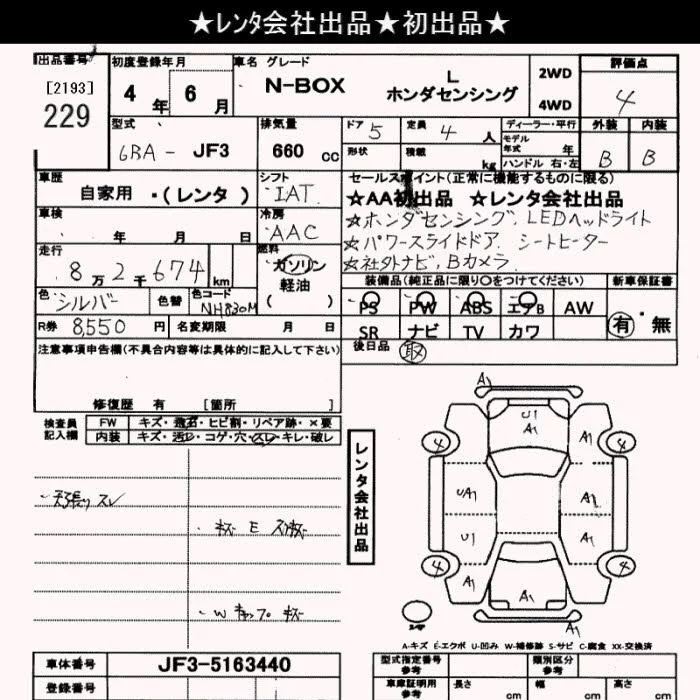 ★レンタ会社出品★初出品★
出品番号 初度登録年月 車名 グレード 評価点
[2193] 229 4年 6月 N-BOX L ホンダセンシング 2WD 4WD 4
型式 排気量 ドア 5 定員 4人 ディーラー・平行 外装 内装
6BA- JF3 660cc 形状 積載 kg モデル年式 年 B B
ハンドル 右・左
車歴 シフト セールスポイント(正常に機能するものに限る)
自家用・(レンタ) IAT ★AA初出品 ★レンタ会社出品
車検 冷房 ☆ホンダセンシング、LEDヘッドライト
年 月 日 AAC ☆パワースライドドア、シートヒーター
走行 燃料 ☆社外ナビ、Bカメラ
8万2千674km ガソリン 軽油 ( )
装備品(純正品に限り○をつけてください) 新車保証書
色 シルバー 色替 色コード NH830M PS PW ABS エアB AW 有・無
R券 8550円 名変期限 月 日 SR ナビ TV カワ
注意事項申告欄(不具合内容等は具体的に記入して下さい) 後日品 取
修復歴 有 [箇所 ]
検査員記入欄 FW キズ・飛石・ヒビ割・リペア跡・×要
内装 キズ・汚レ・コゲ・穴・スレ・キレ・破レ
天張りスレ
キズ E スリキズ
Wキャップキズ
レンタ会社出品
A1
U1
A1
A1
A1
4
4
UA1
A1
U1
A1
4
4
A1
A1
A1
A-キズ E-エクボ U-凹み W-補修跡 S-サビ C-腐食 XX-交換済
車体番号 JF3-5163440 型式指定番号 参考 類別区分 参考
登録番号 車庫証明用 参考 長さ cm 幅 cm 高さ cm